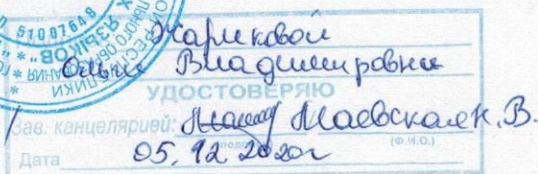 51007648
ЯЗЫКОВ
Жариковой
Ольги Владимировны
УДОСТОВЕРЯЮ
Зав. канцелярией: Маевская Н.В.
(Ф.И.О.)
Дата 05.12.2020г